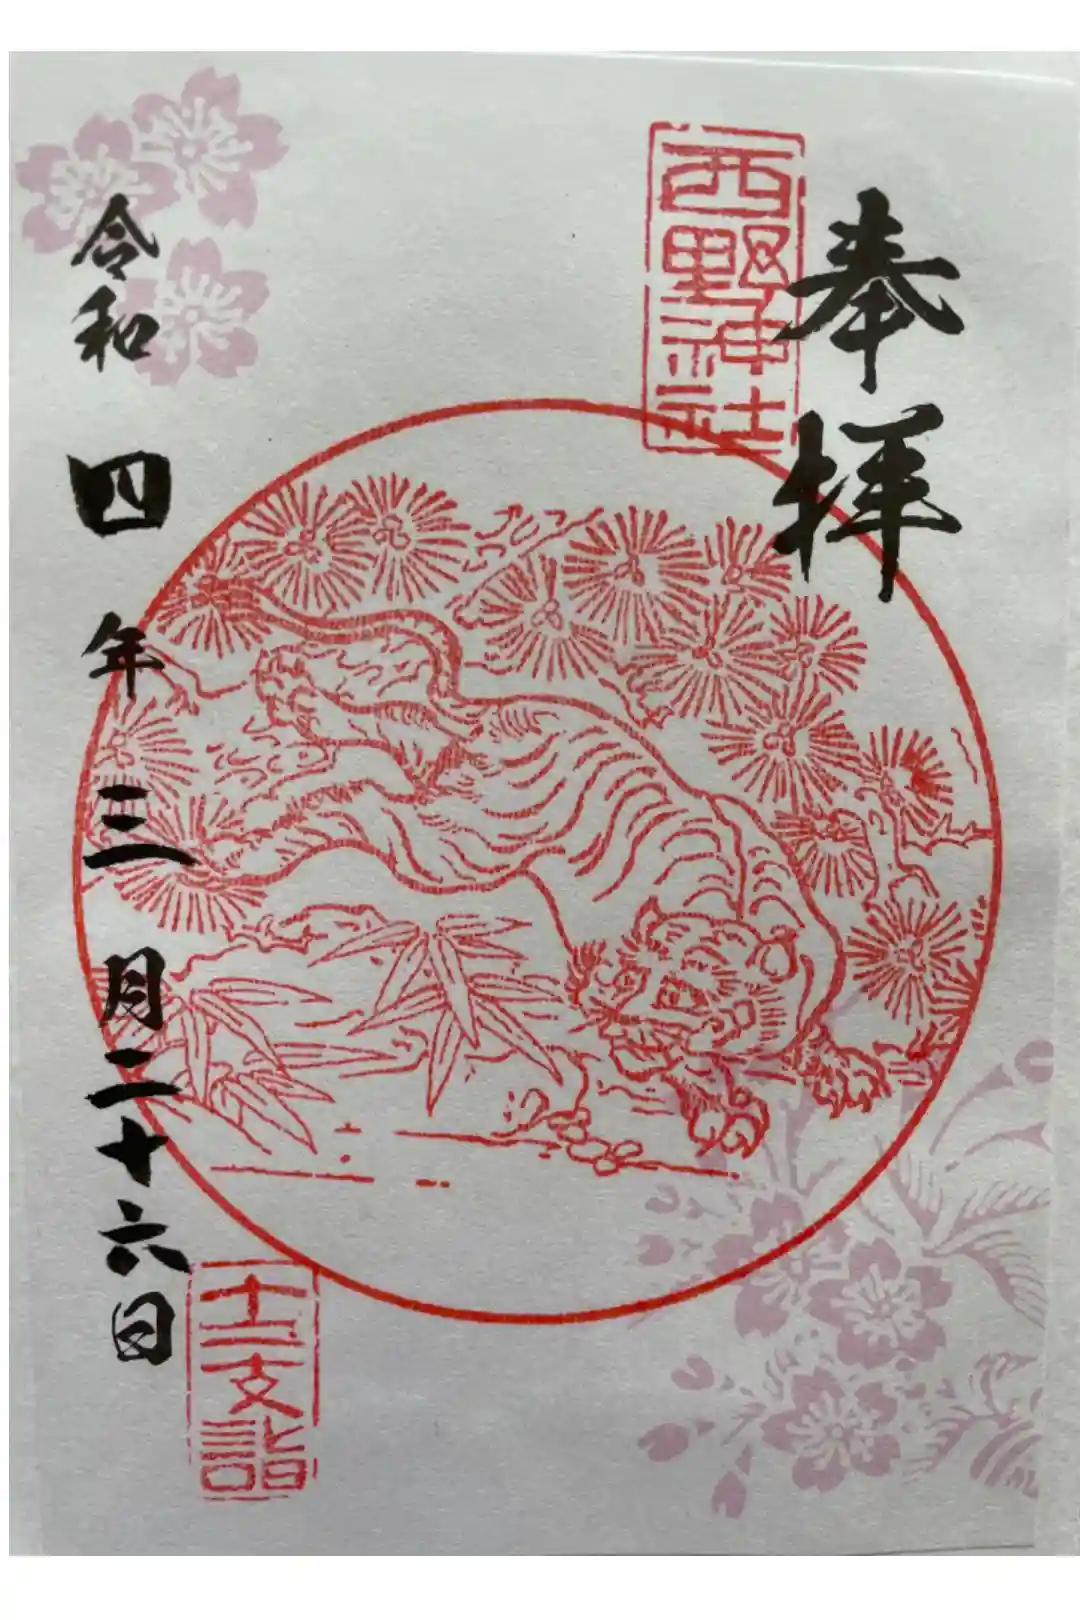 奉拝
西野神社
令和四年三月二十六日
十二支詣